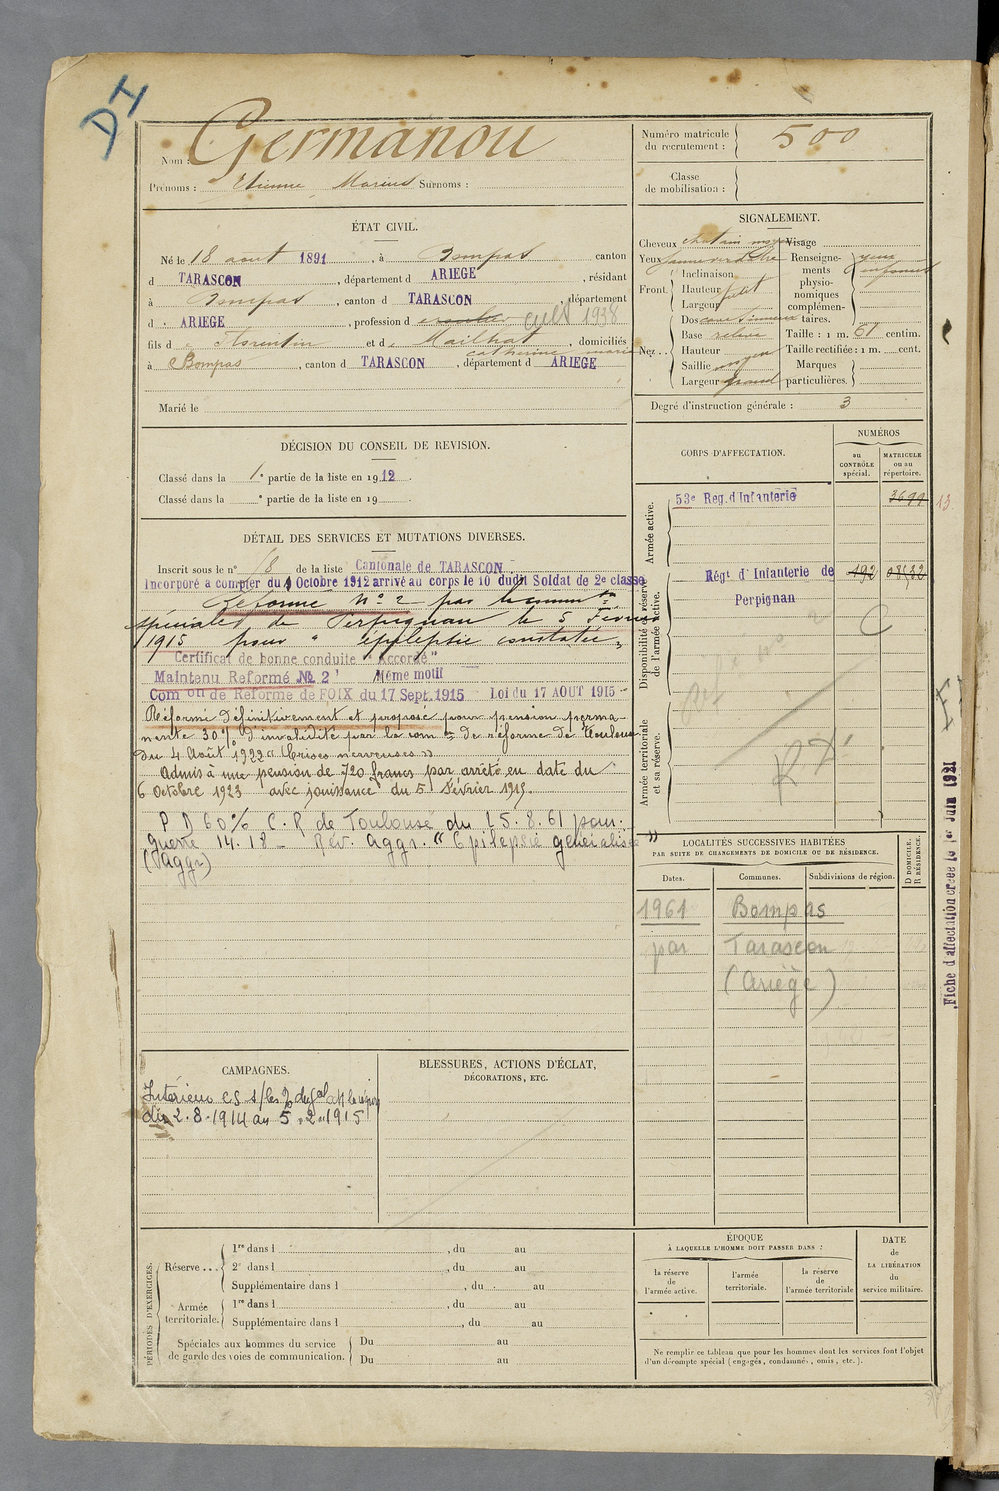 DI
Nom : Germanou
Prénoms : Etienne Marius Surnoms :
Numéro matricule du recrutement : 500
Classe de mobilisation :
ÉTAT CIVIL.
Né le 18 aout 1891, à Bompas canton
d TARASCON, département d ARIEGE, résidant
à Bompas, canton d TARASCON, département
d ARIEGE, profession d cult 1938
fils d Florentin et d Mailhat, domiciliés
catherine marie
à Bompas, canton d TARASCON, département d ARIEGE
Marié le
SIGNALEMENT.
Cheveux chatain moyen Visage
Yeux jaune verdatre
Renseignements physionomiques complémentaires. yeux enfoncés
Front. Inclinaison
Hauteur petit
Largeur
Nez.. Dos cave sinueux
Base relevé
Hauteur
Saillie moyen
Largeur grand
Taille : 1 m. 61 centim.
Taille rectifiée : 1 m. cent.
Marques particulières.
Degré d'instruction générale : 3
DÉCISION DU CONSEIL DE REVISION.
Classé dans la 1e partie de la liste en 1912.
Classé dans la e partie de la liste en 19 .
DÉTAIL DES SERVICES ET MUTATIONS DIVERSES.
Inscrit sous le n° 18 de la liste Cantonale de TARASCON
Incorporé a compter du 1 Octobre 1912 arrivé au corps le 10 dudit Soldat de 2e classe
Réformé N° 2 par la comm on
spéciale de Perpignan le 5 Février
1915 pour " épilepsie constatée "
Certificat de bonne conduite " Accordé "
Maintenu Reformé № 2 Même motif
Com on de Reforme de FOIX du 17 Sept. 1915 Loi du 17 AOUT 1915
Réformé Définitivement et proposé pour pension perma-
nente 30% d'invalidité par la com on de réforme de Toulouse
du 4 Août 1922 " Crises nerveuses "
Admis à une pension de 720 francs par arrêté en date du
6 Octobre 1923 avec jouissance du 5 Février 1915.
P D 60% C.R de Toulouse du 25.8.61 pour
guerre 14.18 - Rév. aggr. " Epilepsie généralisée "
(aggr)
CORPS D'AFFECTATION.
NUMÉROS
au CONTRÔLE spécial.
MATRICULE ou au répertoire.
Armée active.
53e Reg. d'Infanterie 3699
13
Disponibilité et réserve de l'armée active.
Régt d'Infanterie de 192
Perpignan
C
Réf n° 2
RD
Armée territoriale et sa réserve.
LOCALITÉS SUCCESSIVES HABITÉES
PAR SUITE DE CHANGEMENTS DE DOMICILE OU DE RÉSIDENCE.
Dates. Communes. Subdivisions de région. D DOMICILE. R RÉSIDENCE.
1961 Bompas
par Tarascon
(Ariège)
Fiche d'affectation créée le 1er Juin 1921
CAMPAGNES.
Intérieur CS
du 2.8.1914 au 5.2.1915
BLESSURES, ACTIONS D'ÉCLAT,
DÉCORATIONS, ETC.
PÉRIODES D'EXERCICES.
Réserve... 1re dans l , du au
2e dans l , du au
Supplémentaire dans l , du au
Armée territoriale. 1re dans l , du au
Supplémentaire dans l , du au
Spéciales aux hommes du service de garde des voies de communication. Du au
Du au
ÉPOQUE
À LAQUELLE L'HOMME DOIT PASSER DANS :
la réserve de l'armée active.
l'armée territoriale.
la réserve de l'armée territoriale
DATE de LA LIBÉRATION du service militaire.
Ne remplir ce tableau que pour les hommes dont les services font l'objet
d'un décompte spécial (engagés, condamnés, omis, etc.).